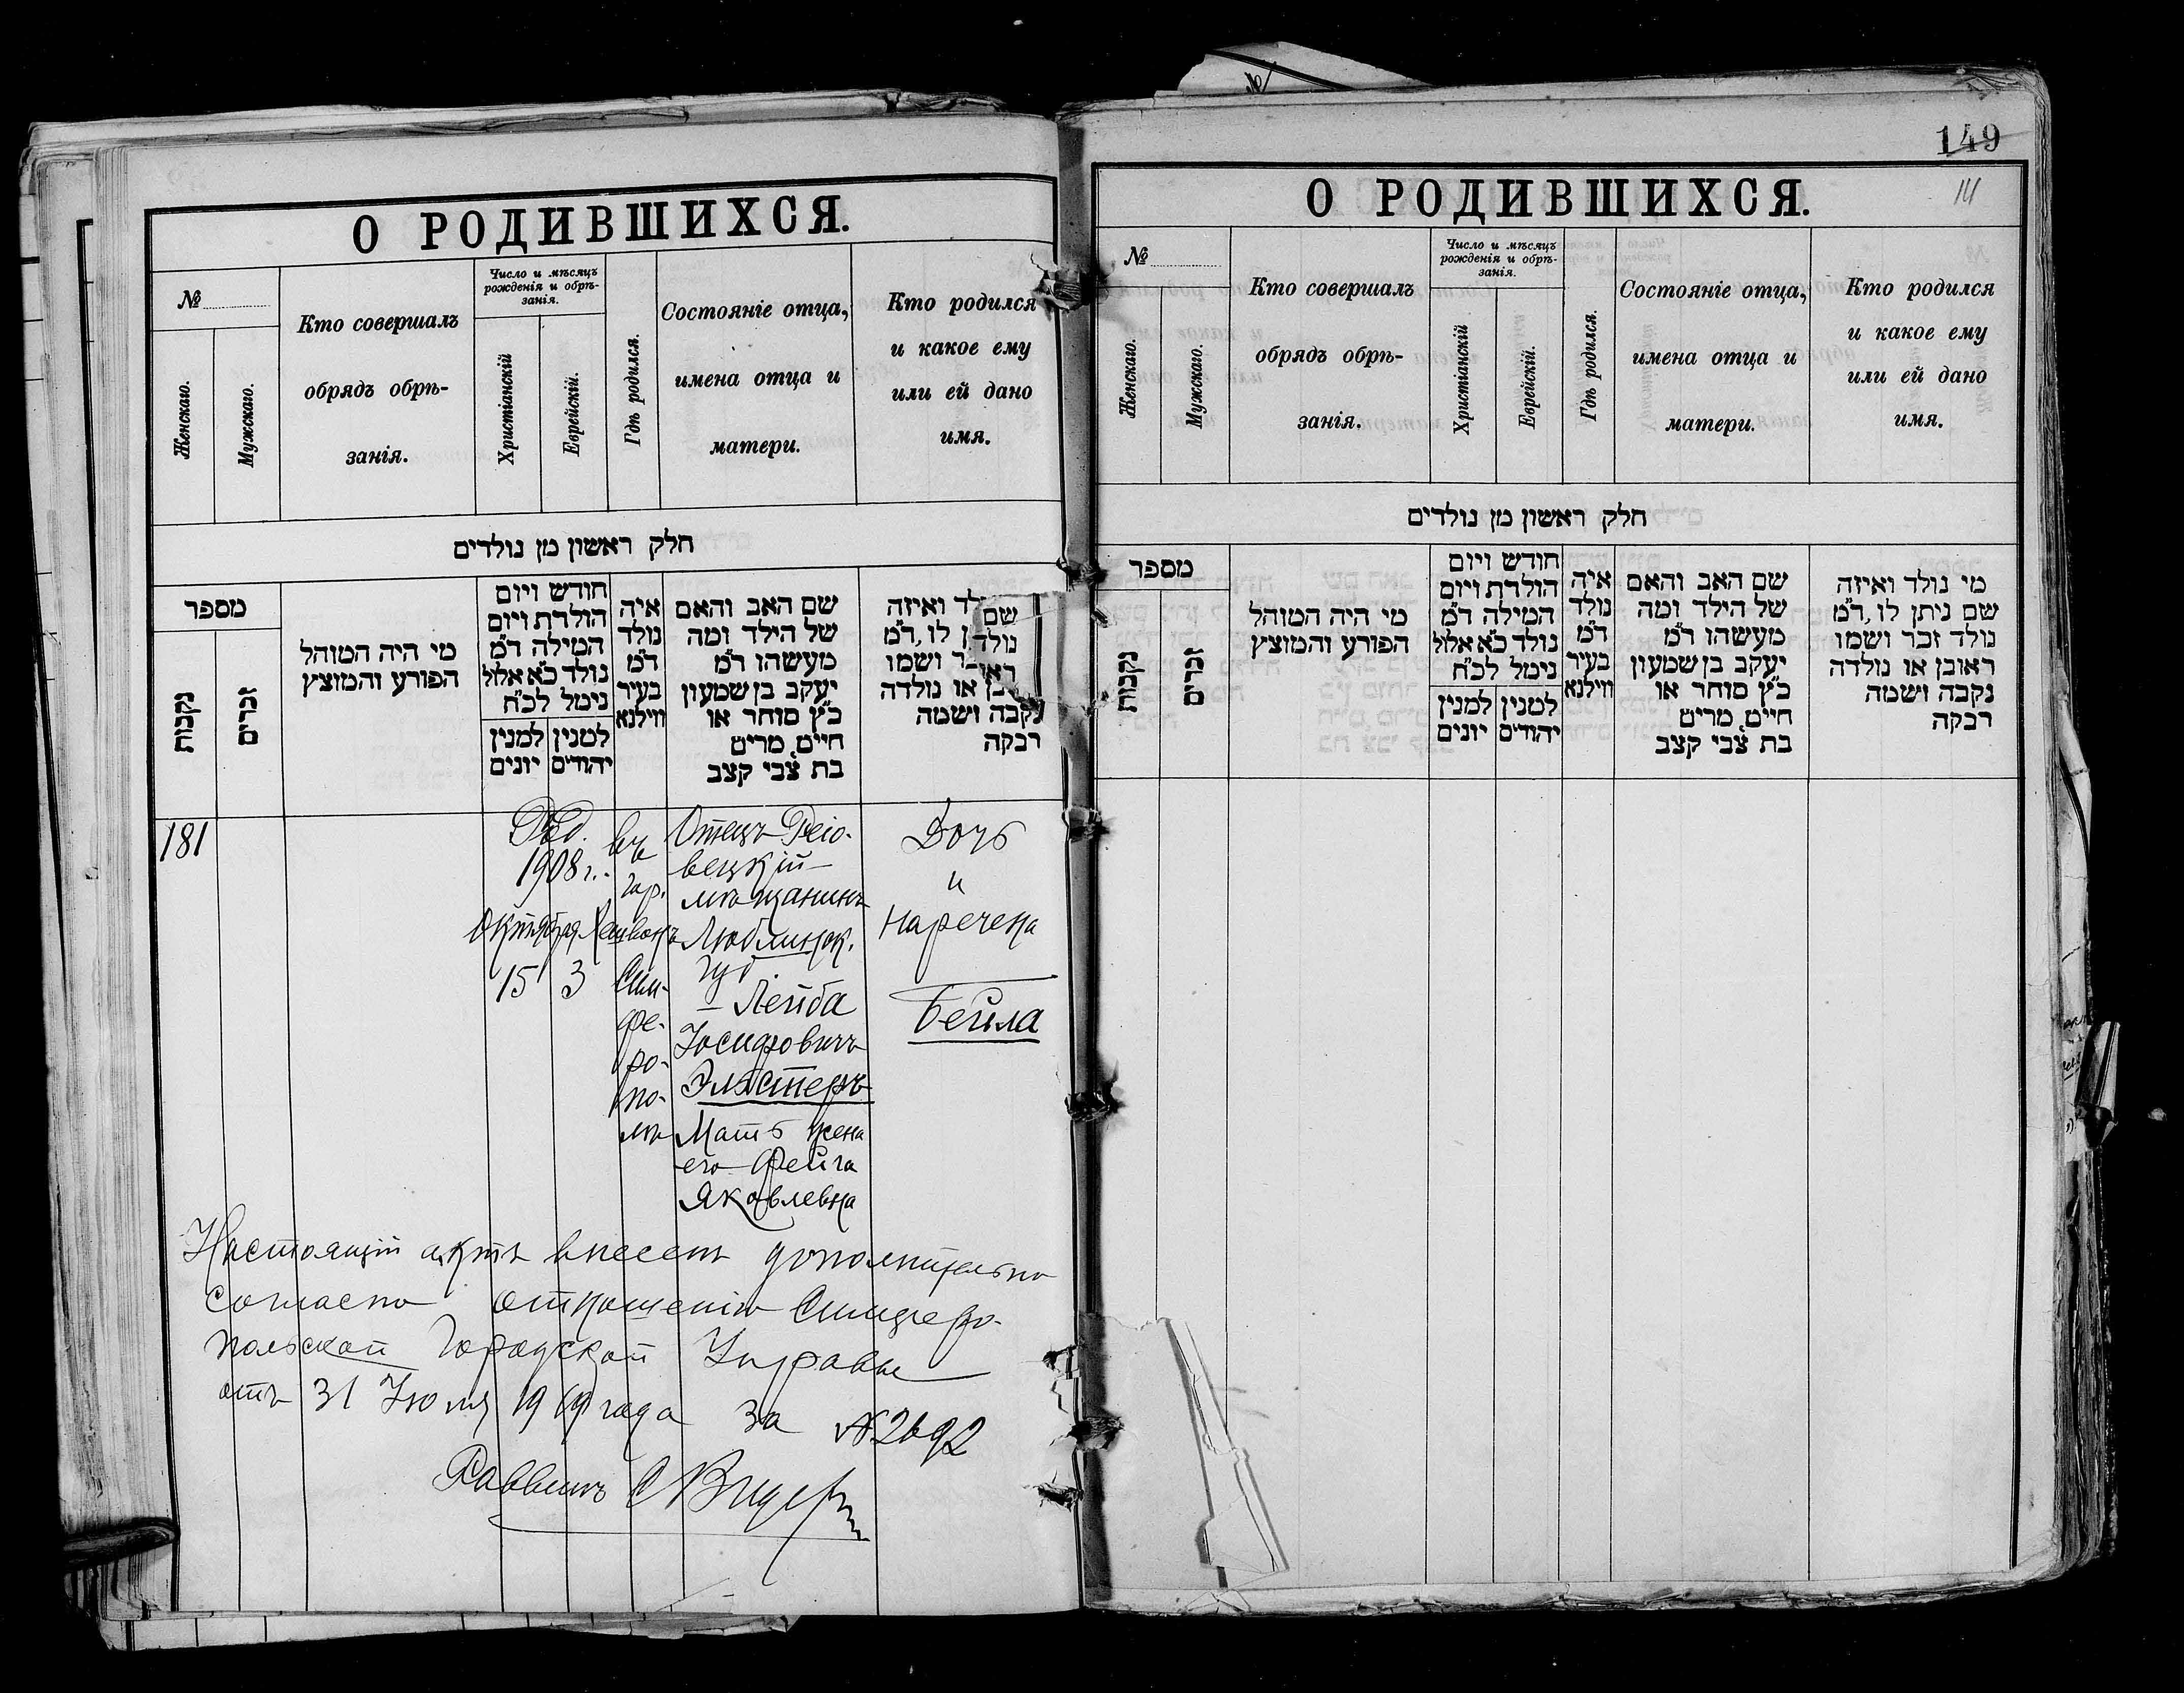 О РОДИВШИХСЯ.
№
Женскаго.
Мужскаго.
Кто совершалъ
обрядъ обрѣ-
занія.
Число и мѣсяцъ
рожденія и обрѣ-
занія.
Христіанскій
Еврейскій.
Гдѣ родился.
Состояніе отца,
имена отца и
матери.
Кто родился
и какое ему
или ей дано
имя.
חלק ראשון מן נולדים
מספר
נקבות
זכרים
מי היה המוהל
הפורע והמוצץ
חודש ויום
הולדת ויום
המילה ד"מ
נולד כ"א אלול
נימל לכ"ח
למנין יונים
למנין יהודים
איה
נולד
ד"מ
בעיר
ווילנא
שם האב והאם
של הילד ומה
מעשהו ד"מ
יעקב בן שמעון
כ"ץ סוחר או
חיים, מרים
בת צבי קצב
ואיזה
לו, ד"מ
ושמו
או נולדה
נקבה ושמה
רבקה
שם
נולד
181
1908 г.
Октября
15
Хешвонъ
3
въ
гор.
Сим-
фе-
ро-
по-
лѣ
Отецъ Рейо-
вецкій
мѣщанинъ
Люблинск.
губ.
– Лейба
Іосифовичъ
Эльстеръ
Мать жена
его Фейга
Яковлевна
Дочь
и
наречена
Бейла
Настоящій актъ внесенъ дополнительно
согласно отношенію Симферо-
польской Городской Управы
отъ 31 Іюля года за № 2692
Раввинъ
149
О РОДИВШИХСЯ.
№
Женскаго.
Мужскаго.
Кто совершалъ
обрядъ обрѣ-
занія.
Число и мѣсяцъ
рожденія и обрѣ-
занія.
Христіанскій
Еврейскій.
Гдѣ родился.
Состояніе отца,
имена отца и
матери.
Кто родился
и какое ему
или ей дано
имя.
חלק ראשון מן נולדים
מספר
נקבות
זכרים
מי היה המוהל
הפורע והמוצץ
חודש ויום
הולדת ויום
המילה ד"מ
נולד כ"א אלול
נימל לכ"ח
למנין יונים
למנין יהודים
איה
נולד
ד"מ
בעיר
ווילנא
שם האב והאם
של הילד ומה
מעשהו ד"מ
יעקב בן שמעון
כ"ץ סוחר או
חיים, מרים
בת צבי קצב
מי נולד ואיזה
שם ניתן לו, ד"מ
נולד זכר ושמו
ראובן או נולדה
נקבה ושמה
רבקה